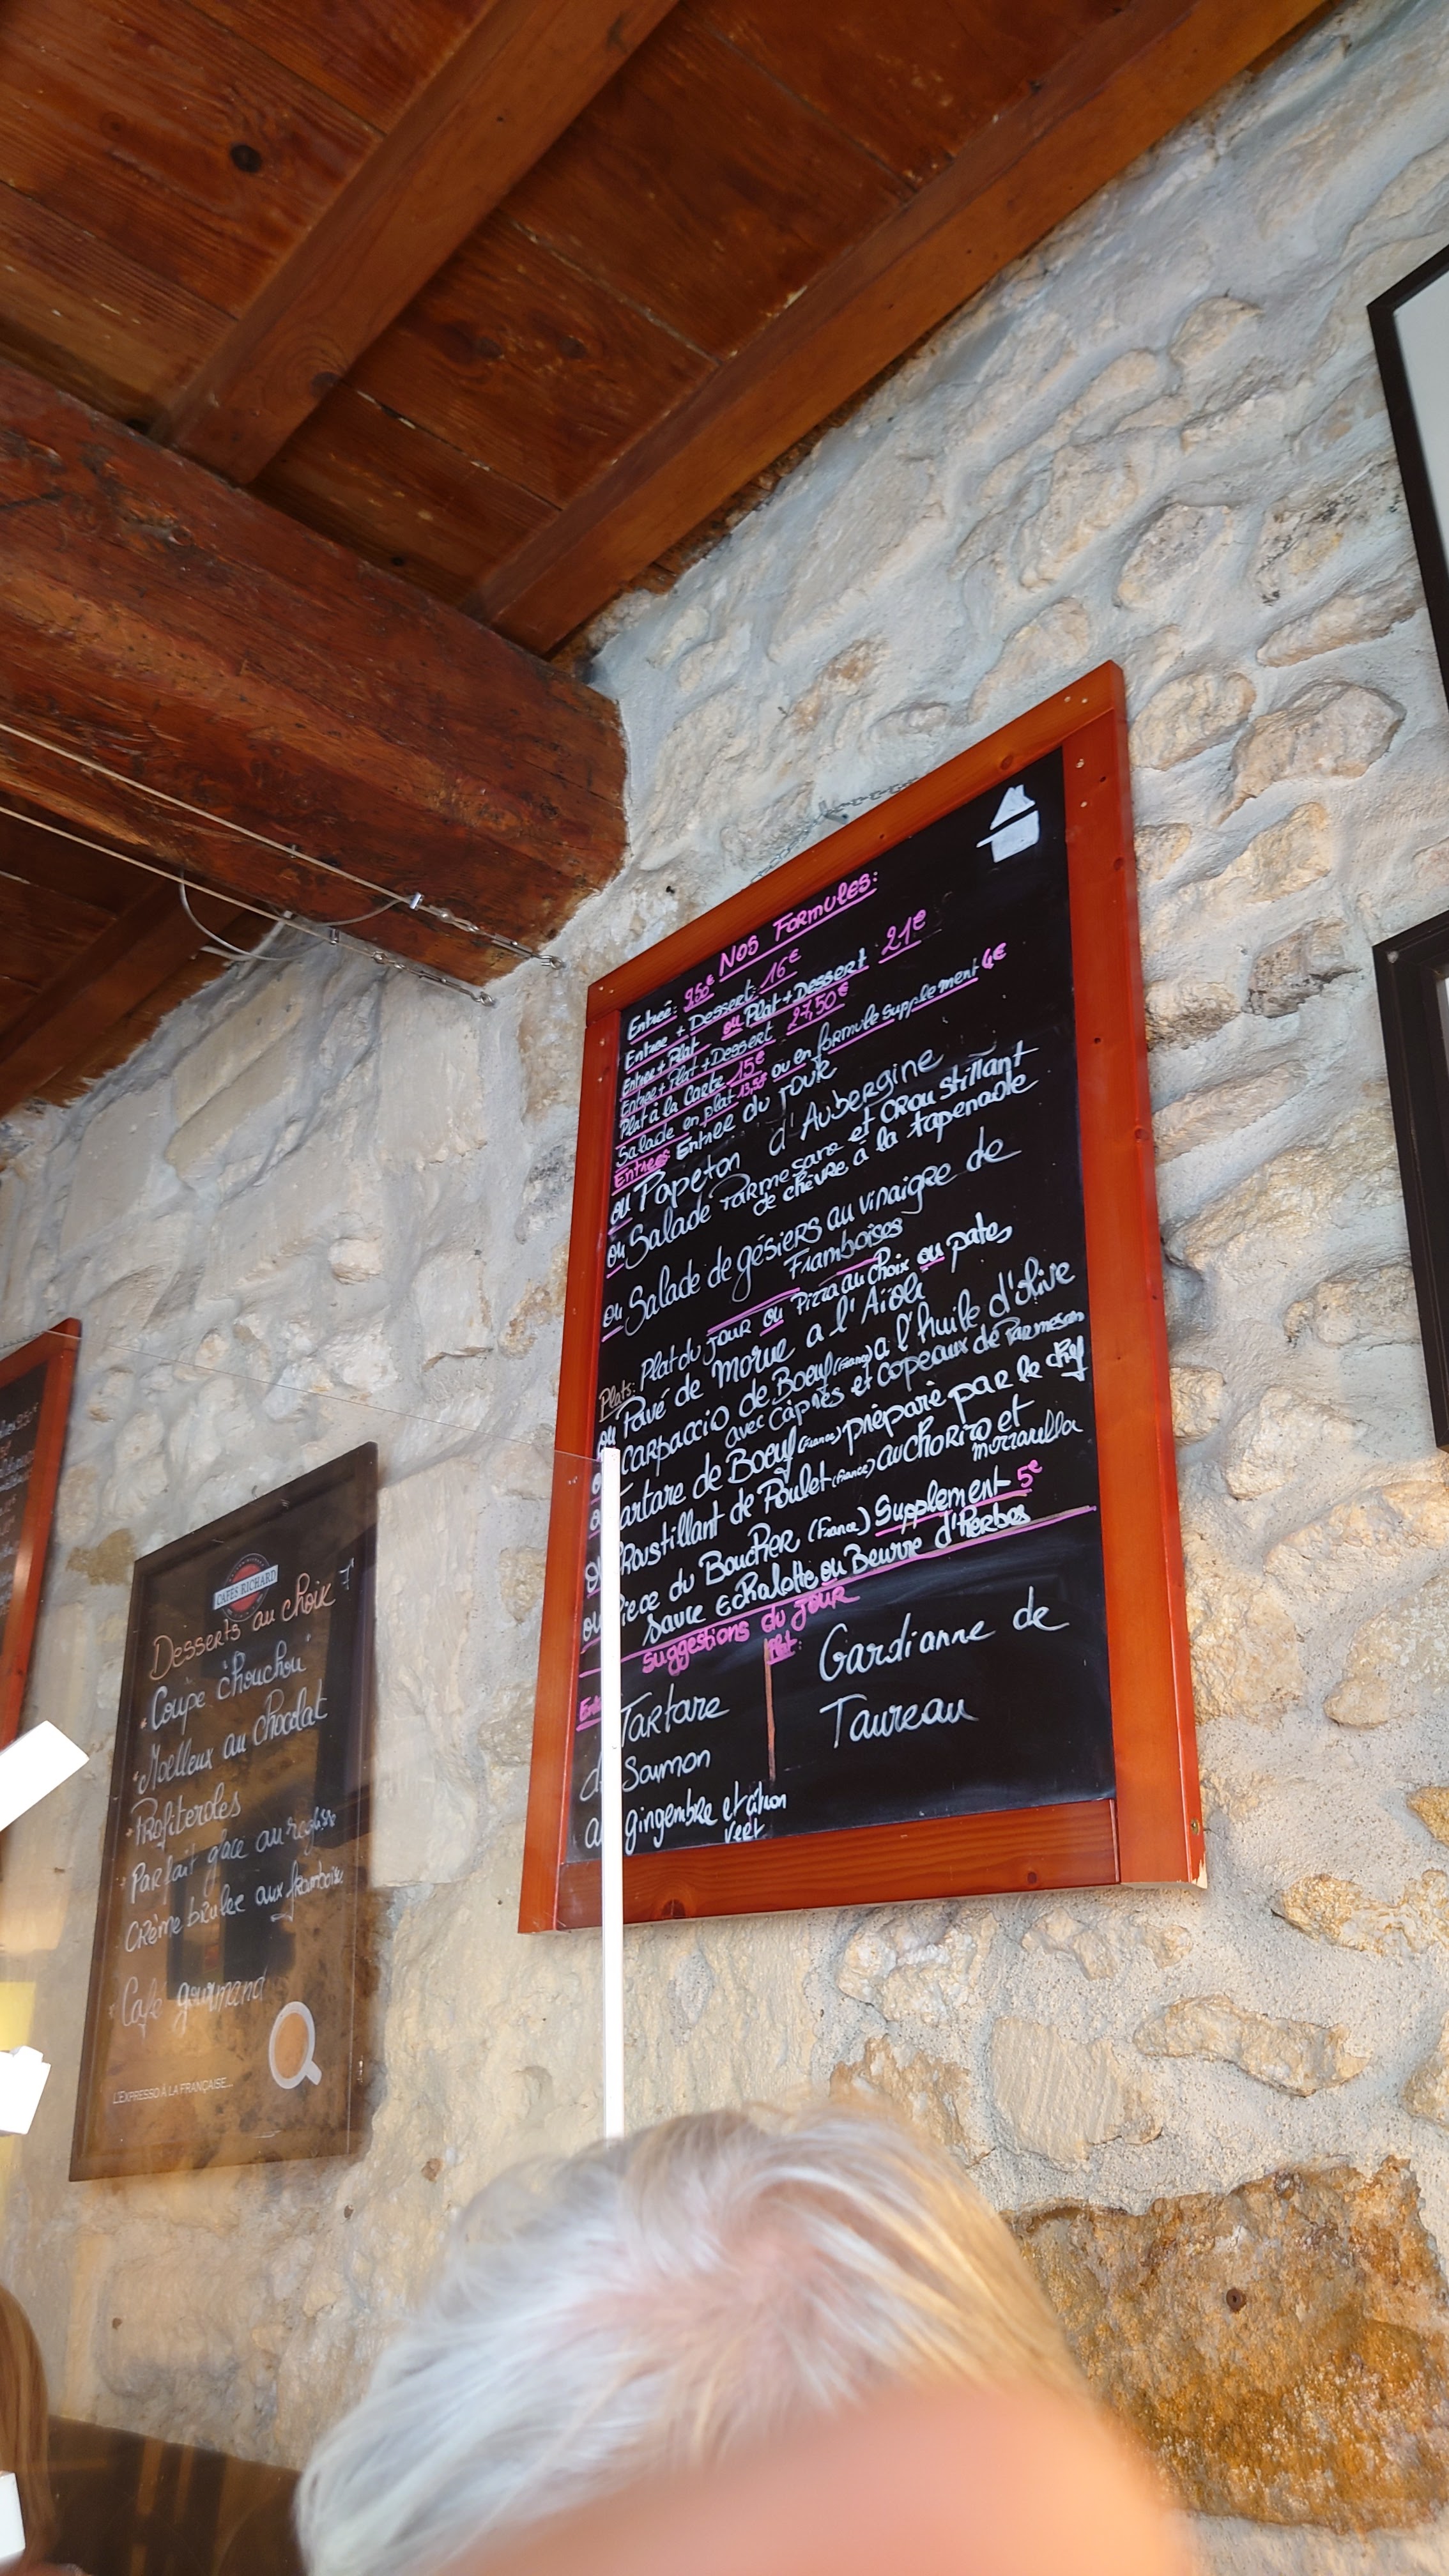 Nos Formules:
Entrée: 9,50€
Entrée + Dessert: 16€
Entrée + Plat ou Plat + Dessert 21€
Entrée + Plat + Dessert 27,50€
Plat à la Carte 15€
Salade en plat 13,50€ ou en formule supplement 4€
Entrées: Entrée du jour
ou Papeton d'Aubergine
ou Salade Parmesane et croustillant
de chèvre à la tapenade
ou Salade de gésiers au vinaigre de
Framboises
Plats: Plat du jour ou Pizza au choix ou pates
ou Pavé de morue a l'Aïoli
Carpaccio de Boeuf (France) a l'huile d'olive
avec Câpres et copeaux de Parmesan
ou Tartare de Boeuf (France) préparé par le chef
Croustillant de Poulet (France) au chorizo et
mozzarella
ou Piece du Boucher (France) Supplement 5€
sauce Echalotte ou Beurre d'Herbes
suggestions du jour
Plat:
Tartare
Saumon
gingembre et citron
vert
Gardianne de
Taureau
CAFÉS RICHARD
Desserts au choix
Coupe "chouchou"
Moelleux au chocolat
Profiteroles
Parfait glacé au réglisse
Crème brulee aux framboises
Café gourmand
L'EXPRESSO À LA FRANÇAISE...